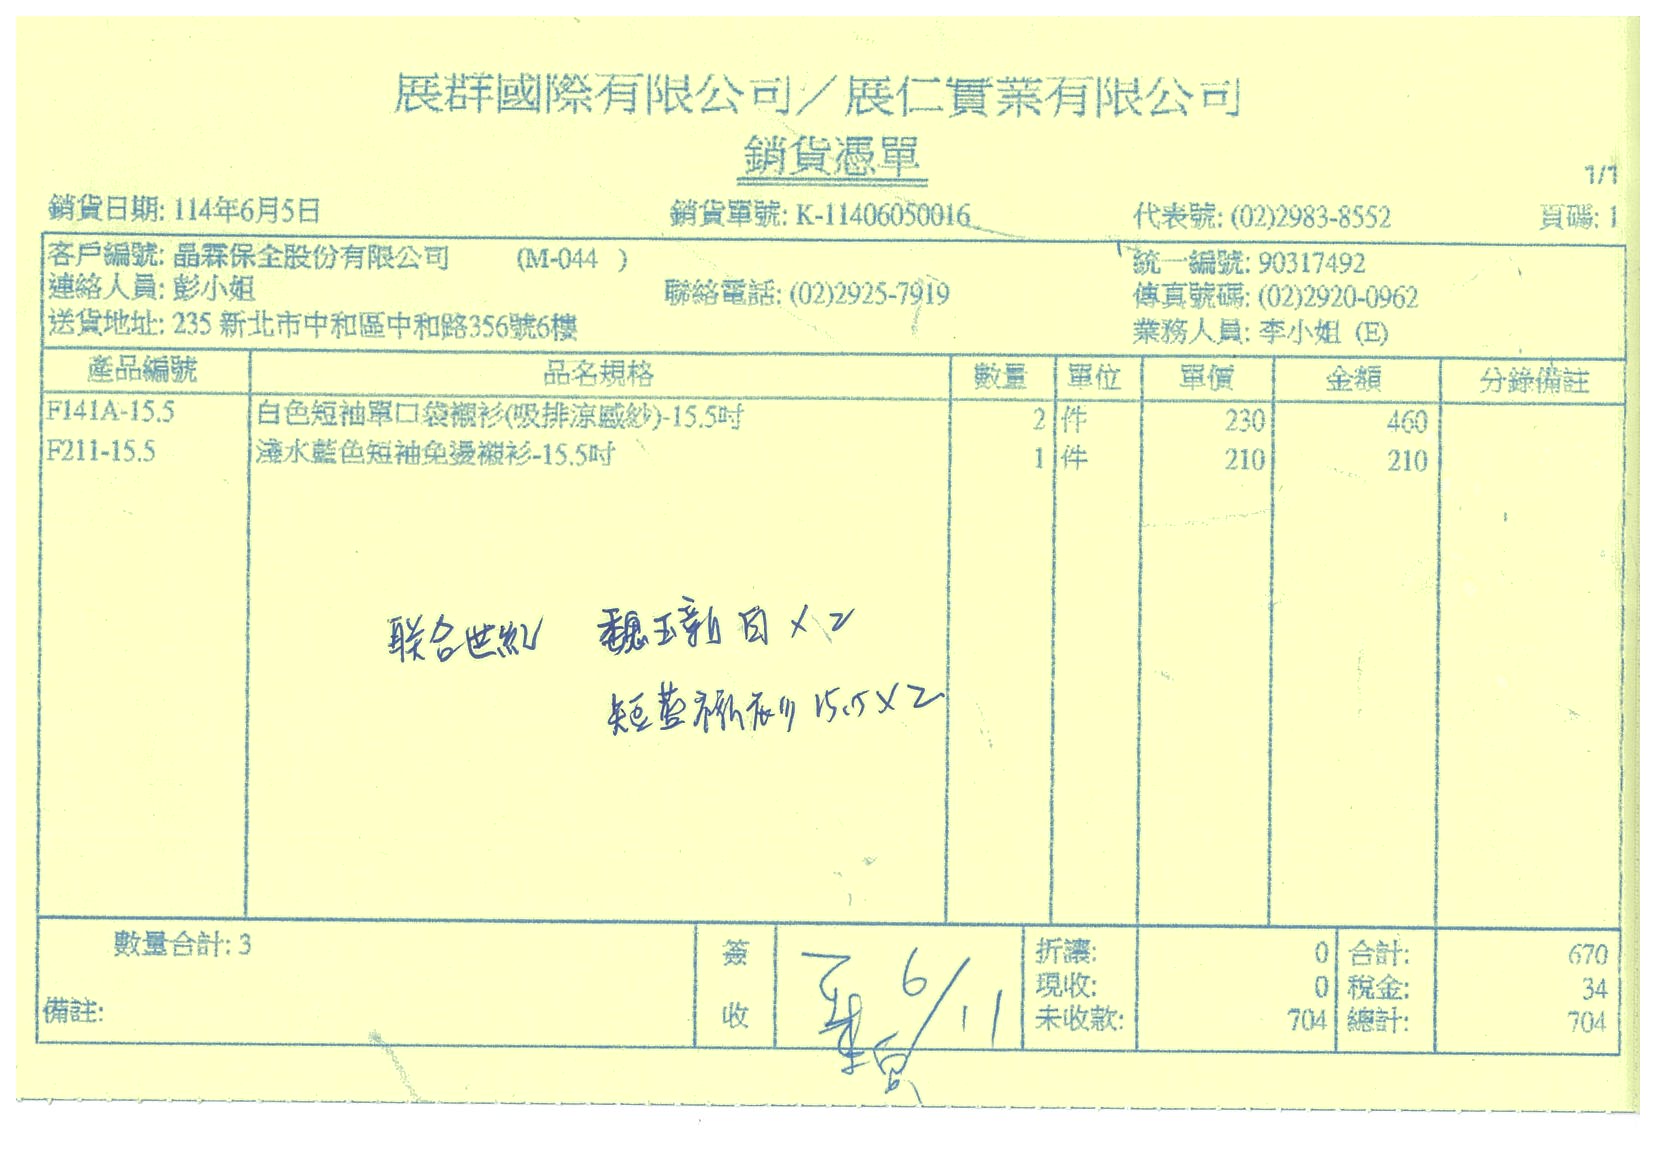 展群國際有限公司／展仁實業有限公司
銷貨憑單
1/1
銷貨日期: 114年6月5日 銷貨單號: K-11406050016 代表號: (02)2983-8552 頁碼: 1
客戶編號: 晶霖保全股份有限公司 (M-044 ) 統一編號: 90317492
連絡人員: 彭小姐 聯絡電話: (02)2925-7919 傳真號碼: (02)2920-0962
送貨地址: 235 新北市中和區中和路356號6樓 業務人員: 李小姐 (E)
產品編號 品名規格 數量 單位 單價 金額 分錄備註
F141A-15.5 白色短袖單口袋襯衫(吸排涼感紗)-15.5吋 2 件 230 460
F211-15.5 淺水藍色短袖免燙襯衫-15.5吋 1 件 210 210
联合世紀 魏玉新 X 2
短藍襯衫 15.5 X 2
數量合計: 3 簽收 6/11 折讓: 0 合計: 670
現收: 0 稅金: 34
備註: 未收款: 704 總計: 704